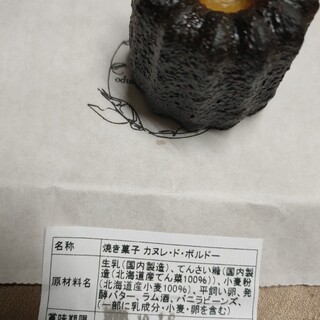 名称
焼き菓子 カヌレ・ド・ボルドー
原材料名
生乳(国内製造)、てんさい糖(国内製
造(北海道産てん菜100%))、小麦粉
(北海道産小麦100%)、平飼い卵、発
酵バター、ラム酒、バニラビーンズ、
(一部に乳成分・小麦・卵を含む)
賞味期限